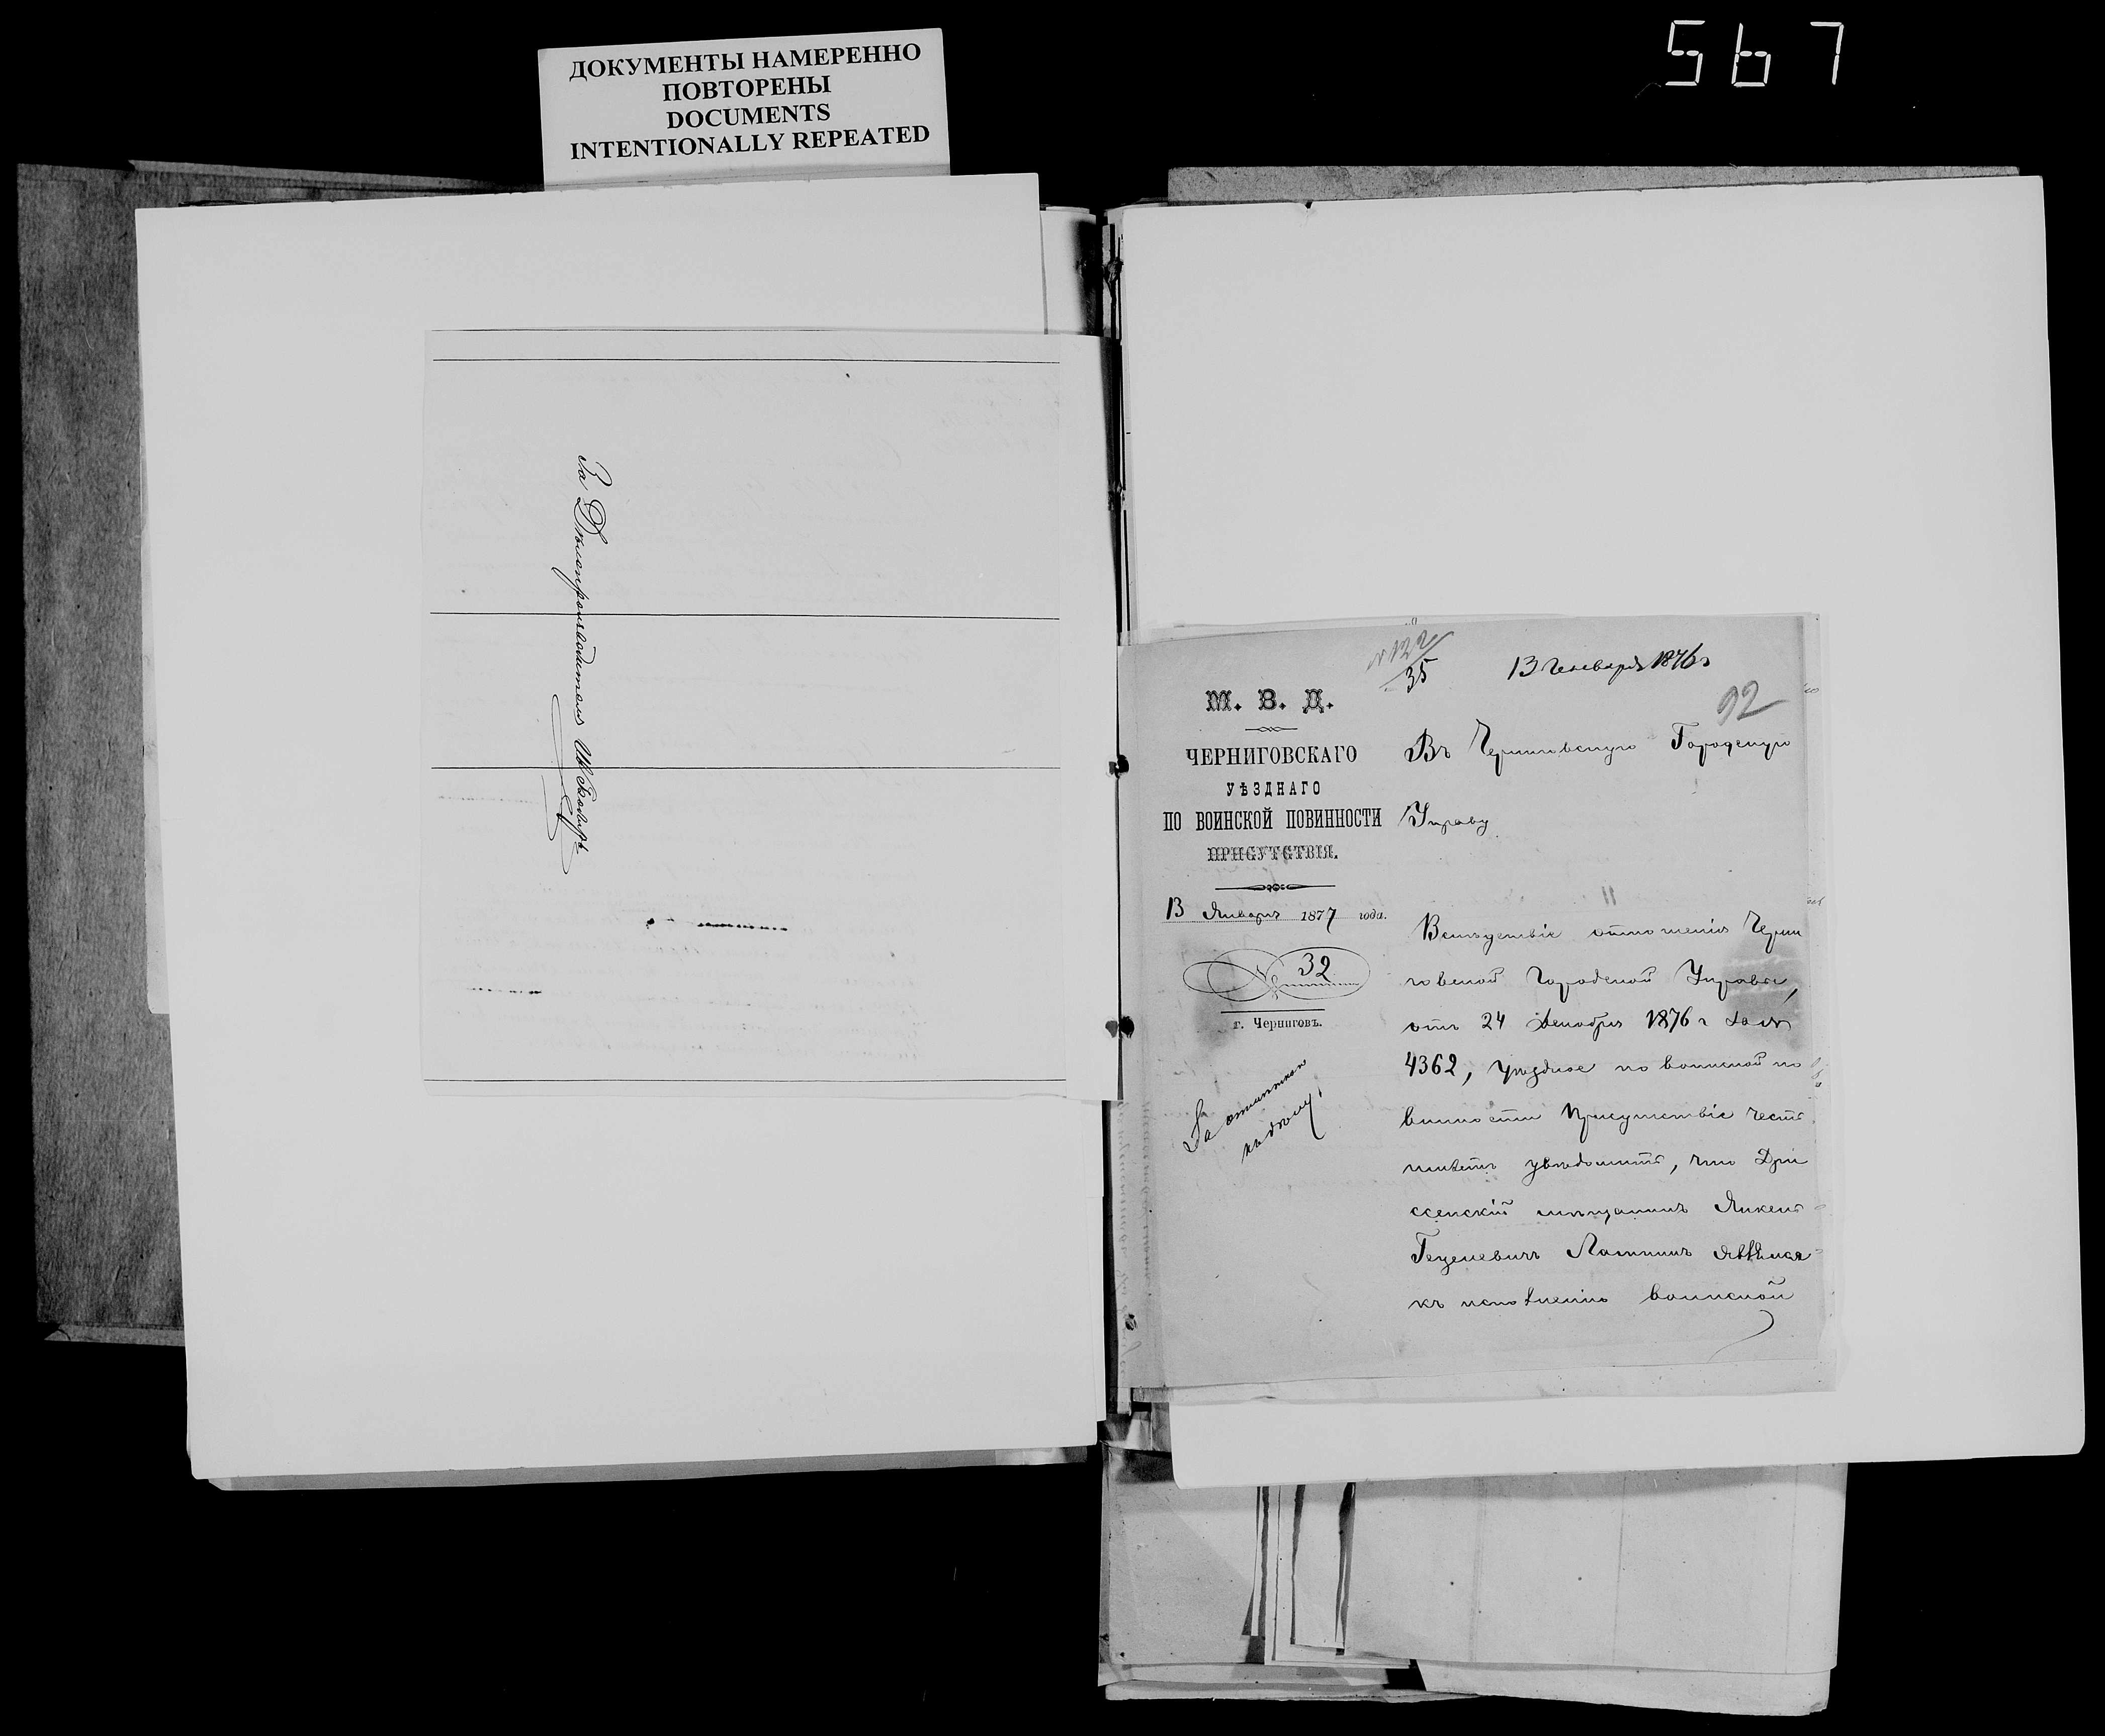 ДОКУМЕНТЫ НАМЕРЕННО
ПОВТОРЕНЫ
DOCUMENTS
INTENTIONALLY REPEATED
567
За Дѣлопроизводителя
№ 122
35
13 Генваря 1876 г
92
М. В. Д.
ЧЕРНИГОВСКАГО
УѢЗДНАГО
ПО ВОИНСКОЙ ПОВИННОСТИ
ПРИСУТСТВІЯ.
13 Января 1877 года.
№ 32
г. Черниговъ.
Въ Черниговскую Городскую
Управу
Вслѣдствіе отношенія Черни
говской Городской Управы,
отъ 24 Декабря 1876 г за №
4362, Уѣздное по воинской по
винности Присутствіе честь
имѣетъ увѣдомить, что Дри
ссенскій мѣщанинъ Янкель
къ исполненію воинской